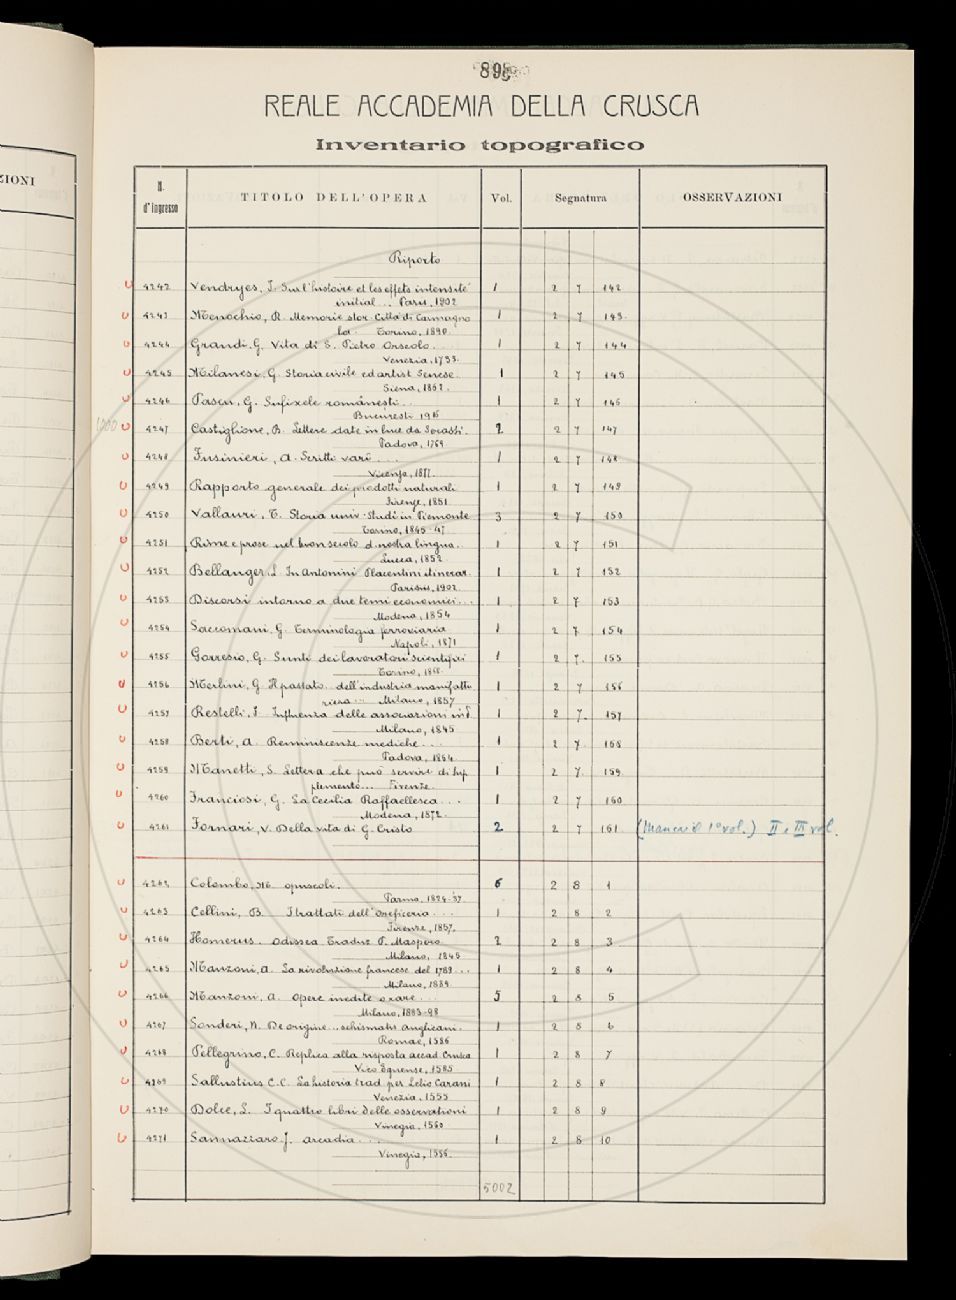 ZIONI
895
REALE ACCADEMIA DELLA CRUSCA
Inventario topografico
N. d'ingresso TITOLO DELL'OPERA Vol. Segnatura OSSERVAZIONI
Riporto
4242 Vendryes, J. Sur l'histoire et les effets intensité 1 2 7 142
initial... Paris, 1902
4243 Menochio, R. Memorie stor. Città di Carmagno 1 2 7 143
la. Torino, 1890.
4244 Grandi, G. Vita di S. Pietro Orseolo. 1 2 7 144
Venezia, 1733.
4245 Milanesi, G. Storia civile ed artist. Senese. 1 2 7 145
Siena, 1862.
4246 Pascu, G. Sufixele românești.. 1 2 7 146
Bucuresti 1916
1000 4247 Castiglione, B. Lettere date in luce da Serassi. 2 2 7 147
Padova, 1769
4248 Fusinieri, A. Scritti varî.... 1 2 7 148
Vicenza, 1877.
4249 Rapporto generale dei prodotti naturali 1 2 7 149
Firenze, 1851
4250 Vallauri, T. Storia univ. Studi in Piemonte 3 2 7 150
Torino, 1845-47
4251 Rime e prose nel buon secolo d. nostra lingua. 1 2 7 151
Lucca, 1852
4252 Bellanger, L. In Antonini Placentini itinerar. 1 2 7 152
Parisiis, 1902.
4253 Discorsi intorno a due temi economici... 1 2 7 153
Modena, 1854
4254 Saccomani, G. Terminologia ferroviaria 1 2 7. 154
Napoli, 1871
4255 Gorresio, G. Sunti dei lavoratori scientifici 1 2 7. 155
Torino,
4256 Merlini, G. Il passato.. dell'industria manifattu 1 2 7 156
riera... Milano, 1857
4257 Restelli, F. Influenza delle associazioni ind. 1 2 7. 157
Milano, 1845
4258 Berti, A. Reminiscenze mediche.... 1 2 7. 158
Padova, 1864
4259 Manetti, S. Lettera che può servire di Sup 1 2 7. 159
plemento... Firenze.
4260 Franciosi, G. La Cecilia Raffaellesca... 1 2 7 160
Modena, 1872.
4261 Fornari, V. Della vita di G. Cristo 2 2 7 161 (Manca il 1° vol.) II e III vol.
4262 Colombo, M. opuscoli. 6 2 8 1
Parma, 1824-'37.
4263 Cellini, B. I trattati dell'Oreficeria... 1 2 8 2
Firenze, 1857.
4264 Homerus. Odissea Traduz P. Maspero 2 2 8 3
Milano, 1845
4265 Manzoni, A. La rivoluzione francese del 1789... 1 2 8 4
Milano, 1889.
4266 Manzoni, A. Opere inedite o rare... 5 2 8 5
Milano, 1883-98
4267 Sanderi, N. De origine... schismatis anglicani. 1 2 8 6
Romae, 1586
4268 Pellegrino, C. Replica alla risposta accad. Crusca 1 2 8 7
Vico Equense, 1585
4269 Sallustius C.C. La historia trad. per Lelio Carani 1 2 8 8
Venezia, 1555
4270 Dolce, L. I quattro libri delle osservationi 1 2 8 9
Vinegia, 1560
4271 Sannazzaro J. Arcadia... 1 2 8 10
Vinegia, 1556.
5002